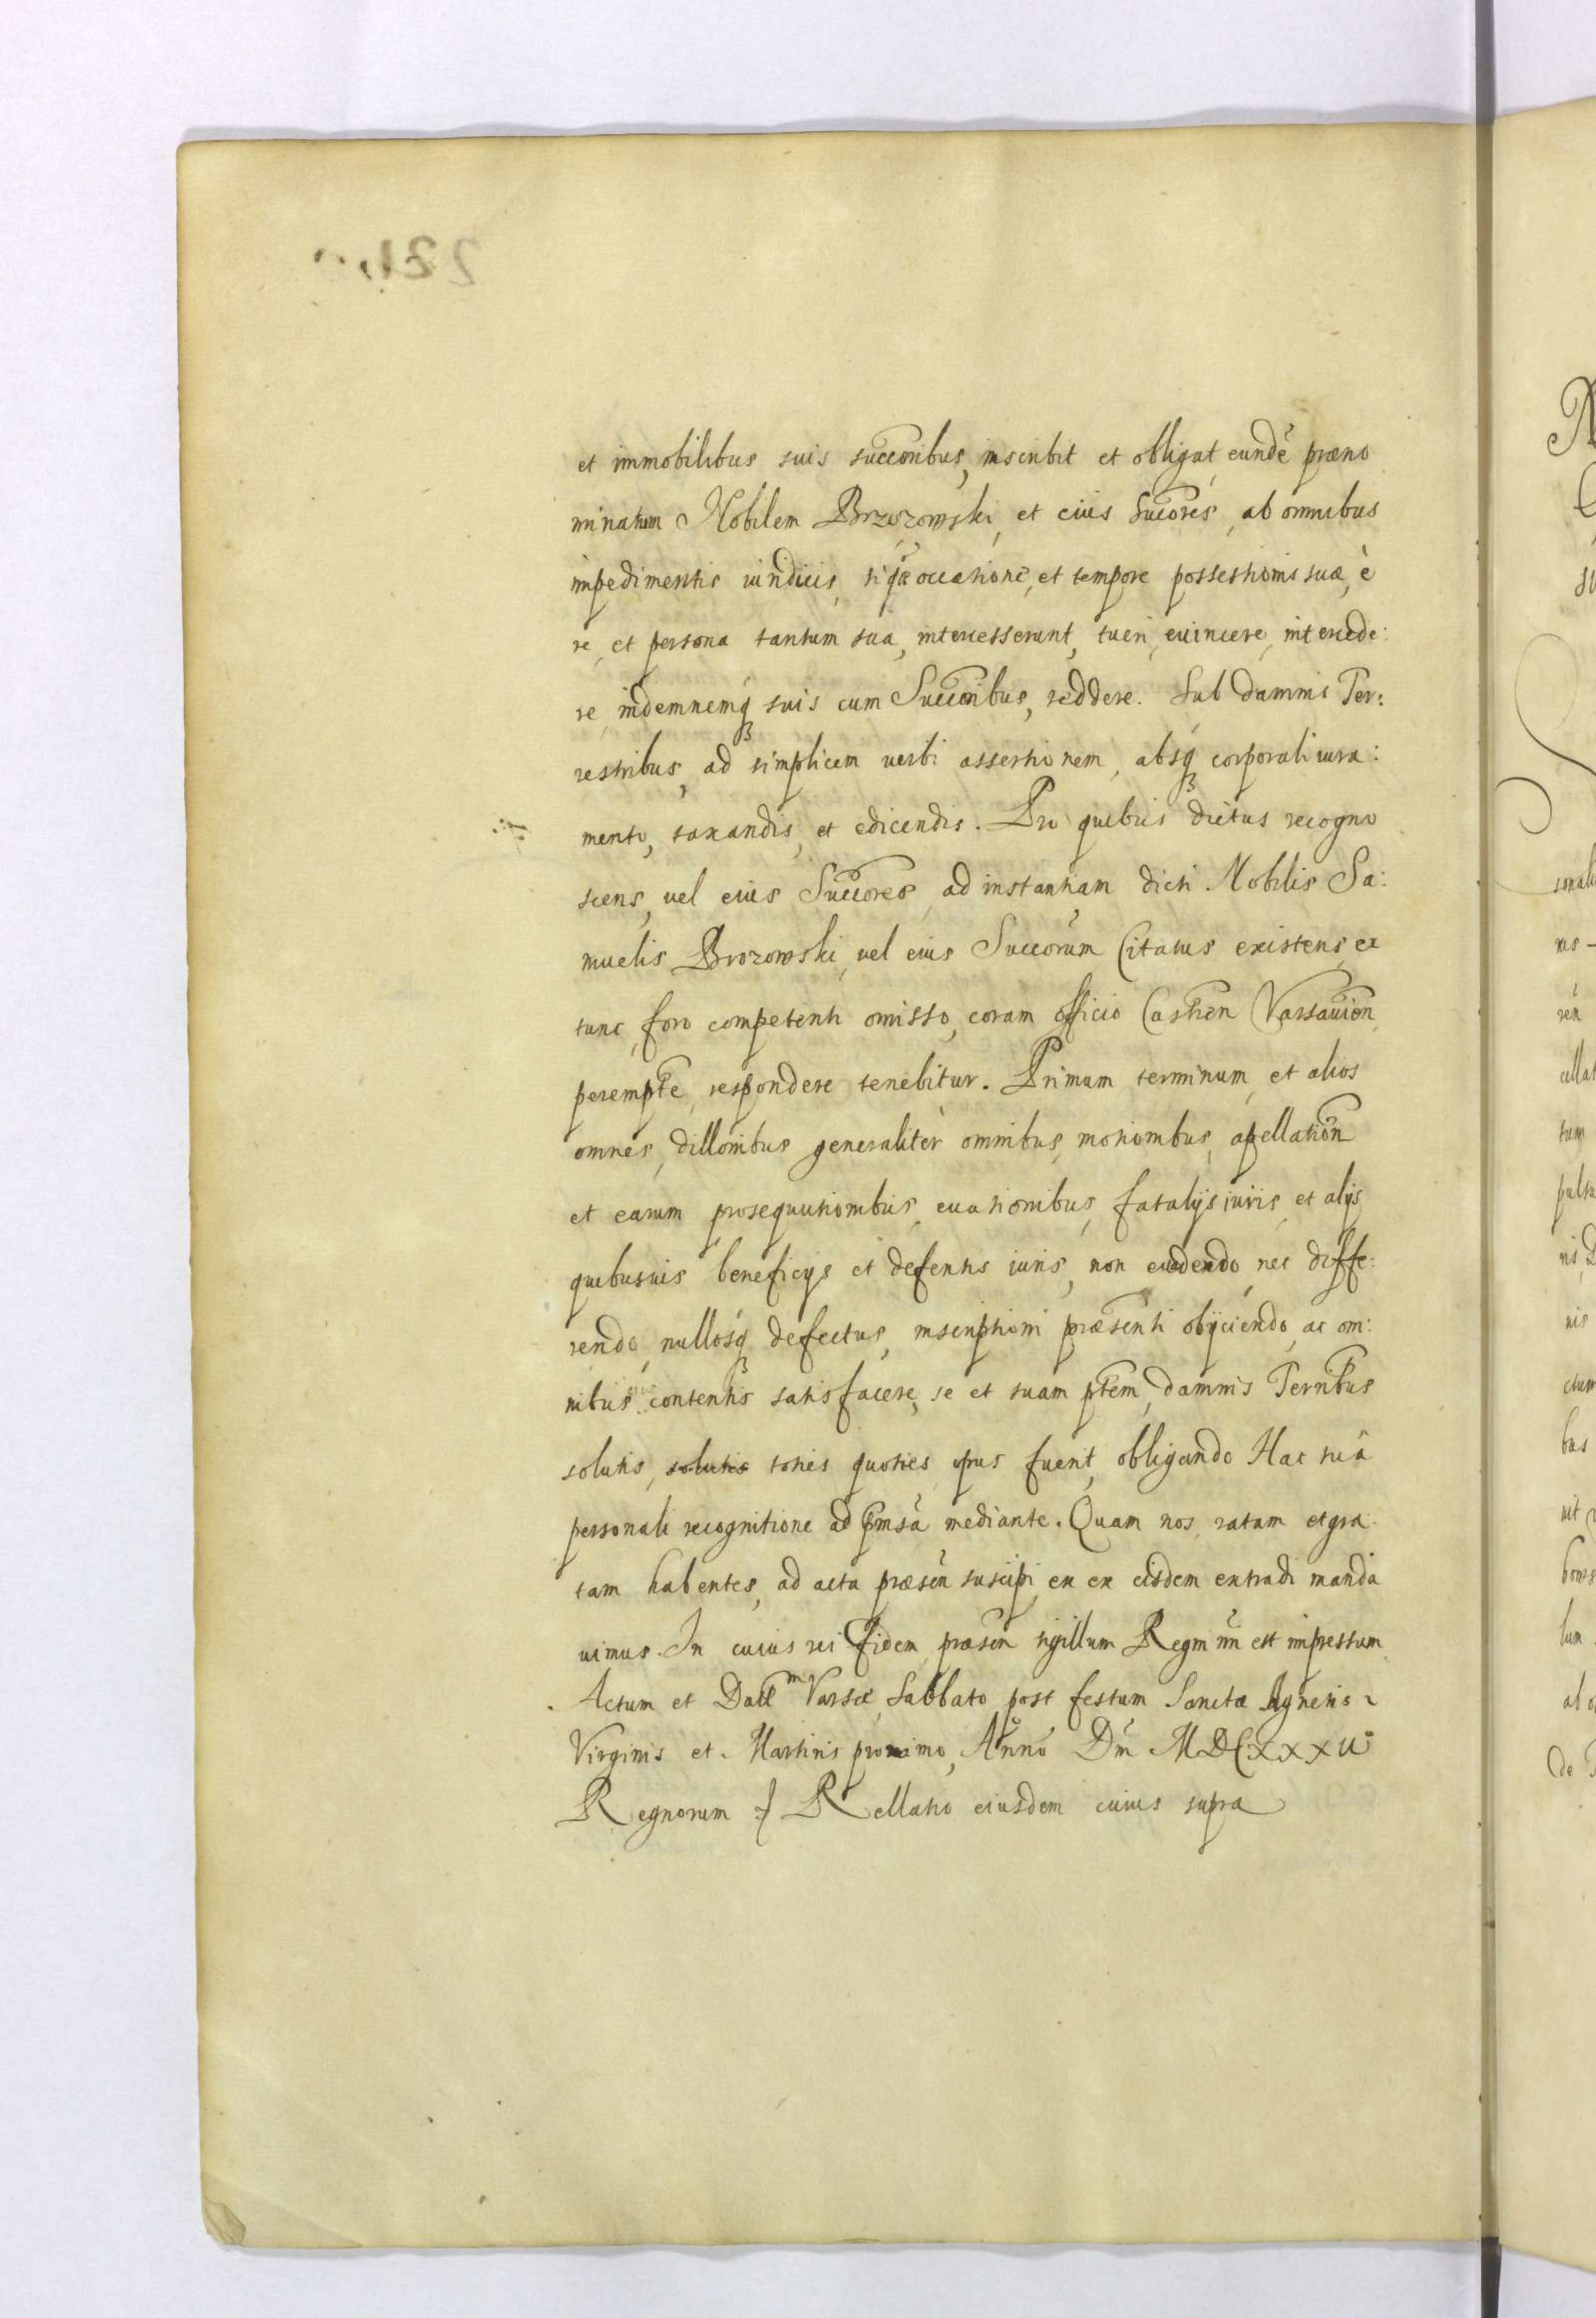 et immobilibus suis succoribus, inscribit et obligat, eundē præno
minatum Nobilem Brzozowski, et eius Succores, ab omnibus
impedimentis iuridicis, si quæ occasione, et tempore possessionis suæ, è
re, et persona tantum sua, intercesserunt, tueri, euincere, intercede:
re, indemnemq suis cum Succoribus, reddere. Sub damnis Ter:
restribus, ad simplicem uerbi assertionem, absq corporali iura:
mento, taxandis, et edicendis. Pro quibus dictus recogno
scens, uel eius Succores, ad instantiam dicti Nobilis Sa:
muelis Brozowski, uel eius Succorum Citatus existens, ex
tunc, foro competenti omisso, coram officio Castren Varsauien
perempte, respondere tenebitur. Primum terminum, et alios
omnes, dillonibus generalitèr omnibus, motionibus, apellation
et earum prosequutionibus, euasionibus, fatalijs iuris, et alijs
quibusuis beneficijs et defensis iuris, non euadendo, nec diffe:
rendo, nullosq defectus, inscriptioni præsenti obijciendo, ac om:
nibus contentis satisfacere, se et suam ptem, damnis Terribus
solutis, solutis toties quoties opus fuerit, obligando Hac sua
personali recognitione ad pmsa mediante. Quam nos, ratam et gra
tam habentes, ad acta præsen suscipi, ex ex eisdem extradi manda
uimus. In cuius rei fidem, præsen sigillum Regni nri est impressum
Actum et Datt m Varsæ, Sabbato post festum Sanctæ Agnetis
Virginis et Martiris proximo, Anno Dni MDCXXXV
Regnorum Rellatio eiusdem cuius supra